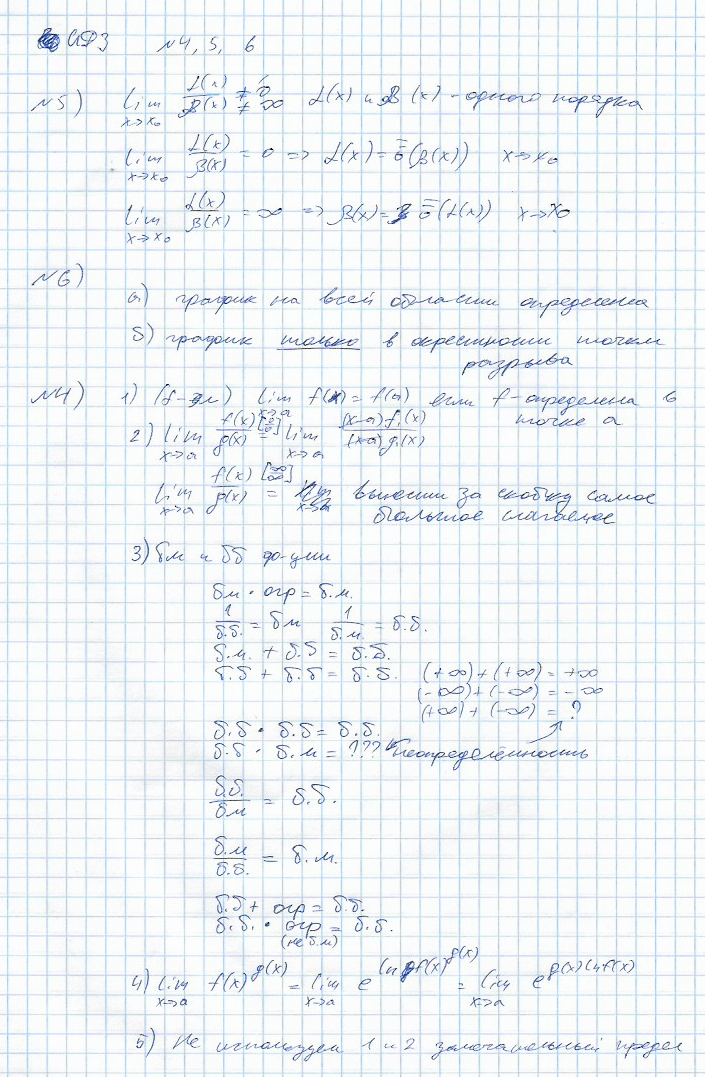 ИДЗ №4, 5, 6
№5) lim x→x₀ α(x)/β(x) ≠ 0 ≠ ∞ α(x) и β(x) - одного порядка
lim x→x₀ α(x)/β(x) = 0 => α(x) = ō(β(x)) x→x₀
lim x→x₀ α(x)/β(x) = ∞ => β(x) = ō(α(x)) x→x₀
№6)
а) график на всей области определения
б) график только в окрестности точки
разрыва
№4) 1) lim x→a f(x) = f(a) если f - определена в
точке a
2) lim x→a f(x)/g(x) [0/0] = lim x→a (x-a)f₁(x)/(x-a)g₁(x)
lim x→a f(x)/g(x) [∞/∞] = вынесли за скобку самое
большое слагаемое
3) бм и бб ф-ции
бм · огр = б.м.
1/б.б. = бм 1/б.м. = б.б.
б.м. + б.б = б.б.
б.б + б.б = б.б. (+∞)+(+∞) = +∞
(-∞)+(-∞) = -∞
(+∞)+(-∞) = ?
б.б · б.б = б.б.
б.б · б.м = ??? Неопределённость
б.б./бм = б.б.
б.м/б.б. = б.м.
б.б + огр = б.б.
б.б. · огр = б.б.
(не б.м)
4) lim x→a f(x)^g(x) = lim x→a e^(ln f(x)^g(x)) = lim x→a e^(g(x) ln f(x))
5) Не используем 1 и 2 замечательный предел